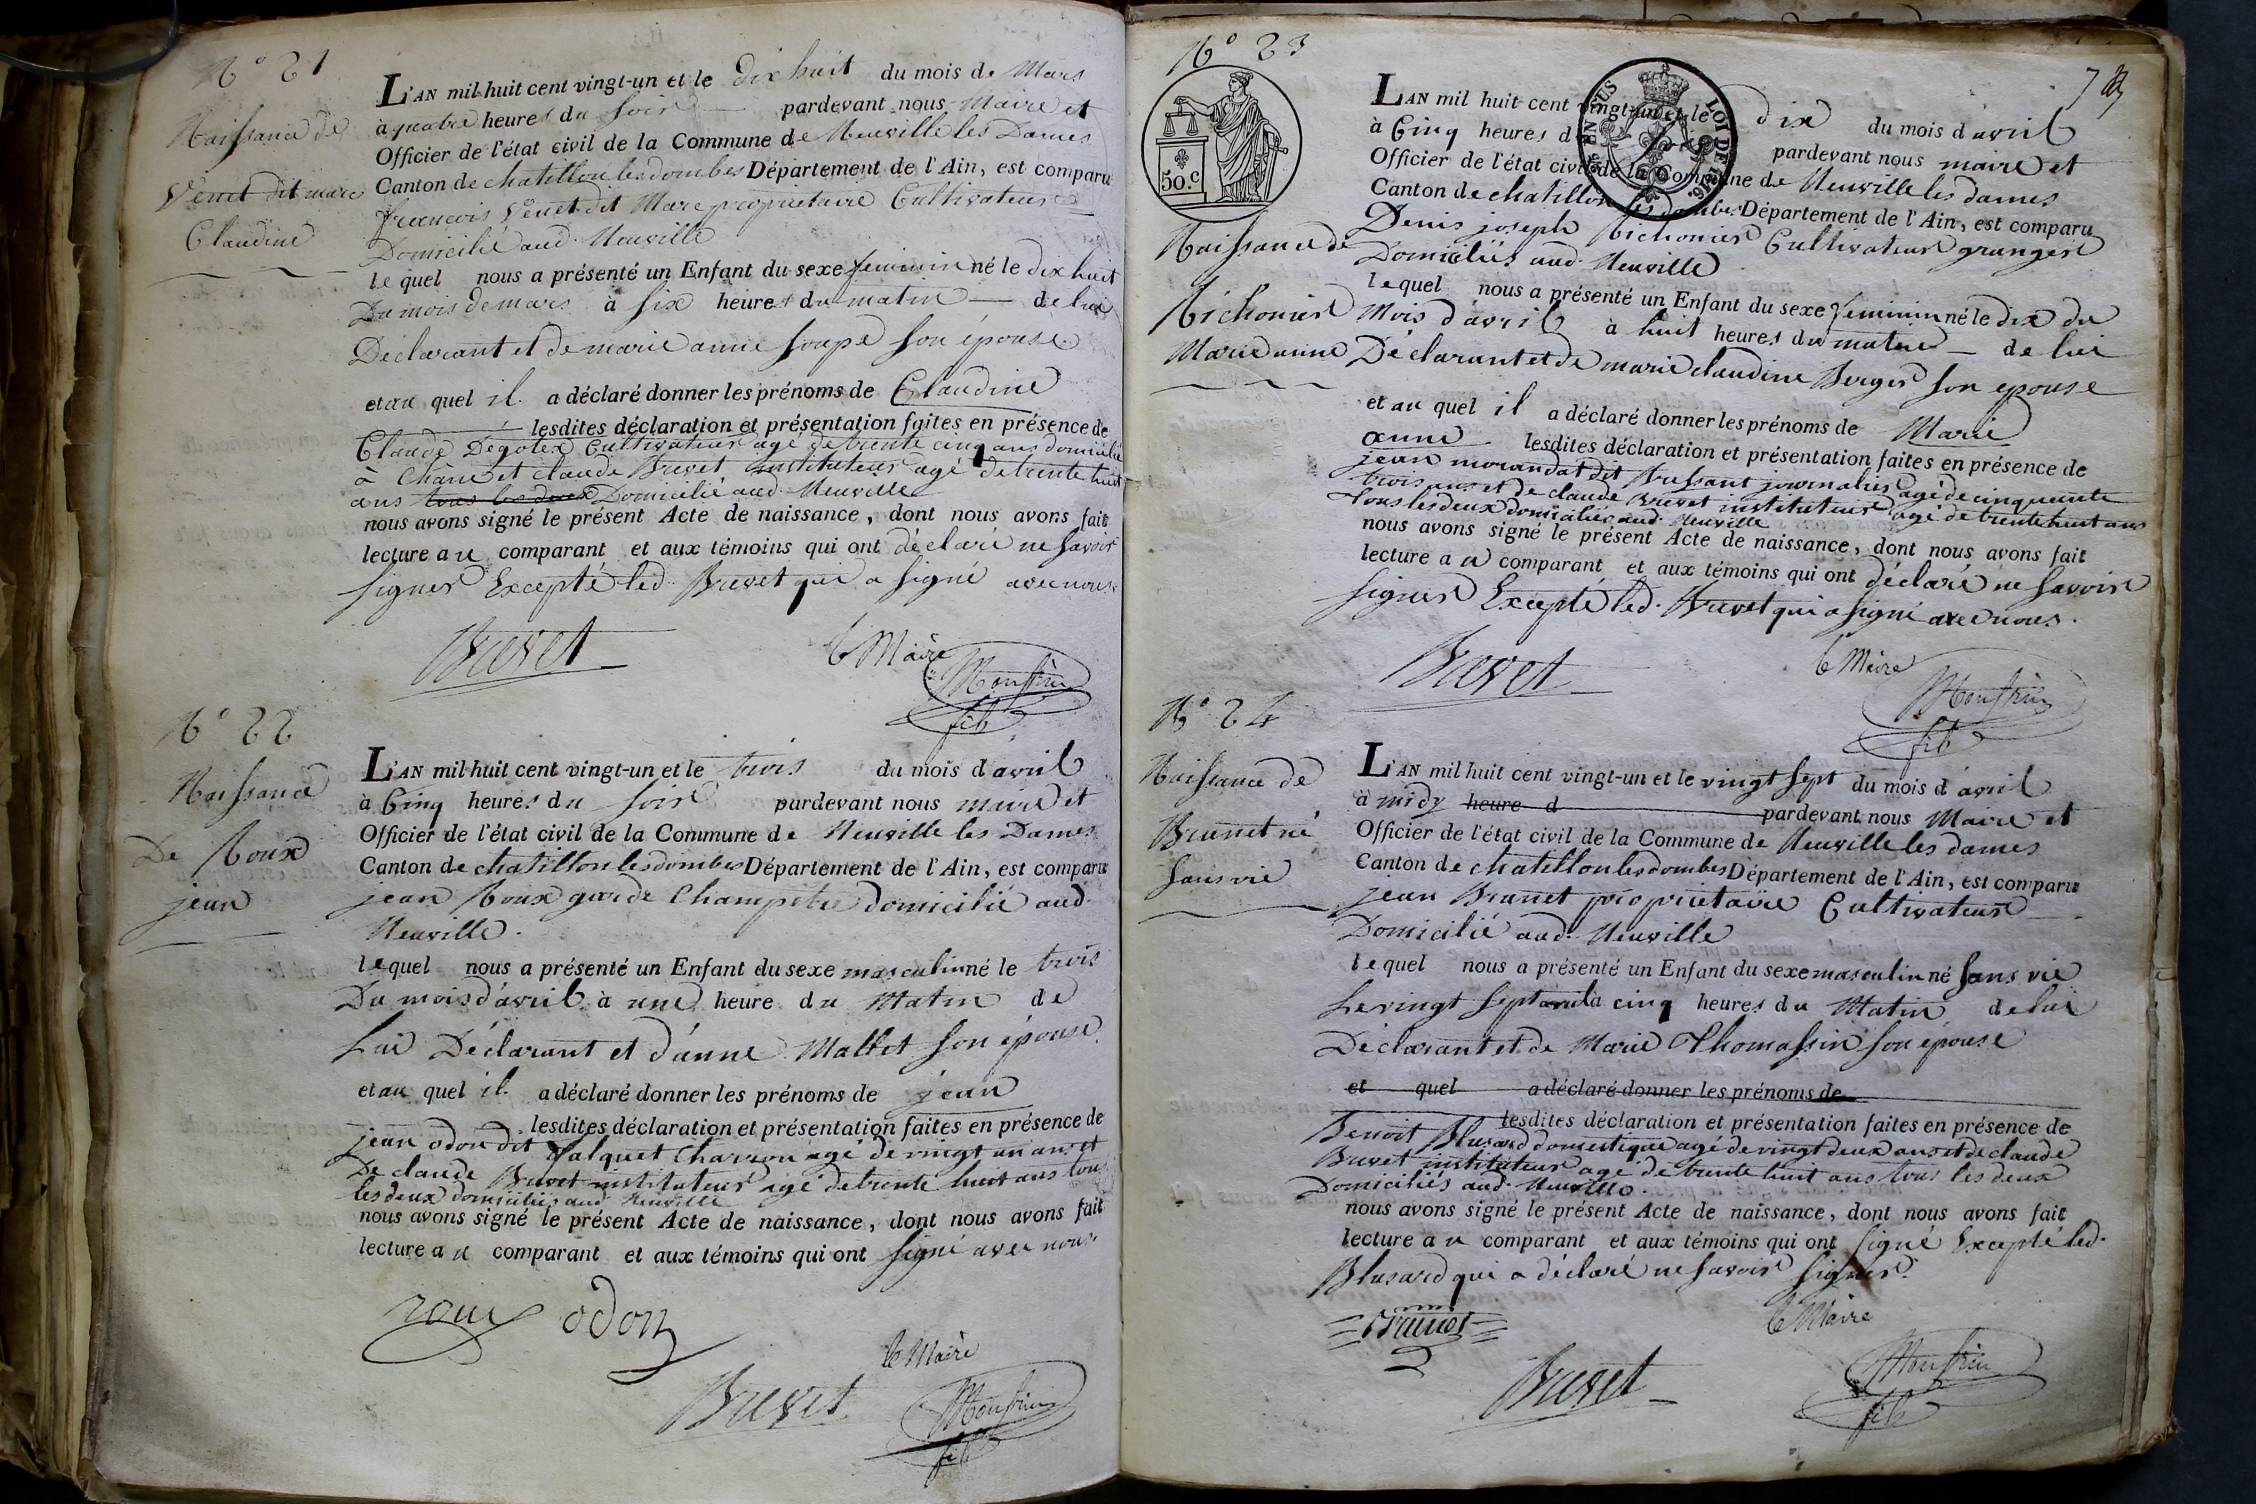 N° 21
Naissance de
Venet dit marc
Claudine
L'AN mil huit cent vingt-un et le dix huit du mois de Mars
à quatre heures du soir pardevant nous Maire et
Officier de l'état civil de la Commune de Neuville les Dames
Canton de chatillon les dombes Département de l'Ain, est comparu
francois Venet dit Marc propriétaire Cultivateur
Domicilié aud. Neuville
le quel nous a présenté un Enfant du sexe feminin né le dix huit
Du mois de mars à six heures du matin de lui
Déclarant et de marie anne soupe son épouse.
et au quel il a déclaré donner les prénoms de Claudine
lesdites déclaration et présentation faites en présence de
Claude Degolex Cultivateur agé de trente cinq ans domicilié
à Chane et claude Brevet instituteur agé de trente huit
ans tous les deux Domicilié aud. Neuville
nous avons signé le présent Acte de naissance, dont nous avons fait
lecture au comparant et aux témoins qui ont déclaré ne savoir
signer Excepté led. Brevet qui a signé avec nous.
Brevet
le Maire
Monfrin
fils
N° 22
Naissance
De Roux
jean
L'AN mil huit cent vingt-un et le trois du mois d'avril
à Cinq heures du soir pardevant nous maire et
Officier de l'état civil de la Commune de Neuville les Dames
Canton de chatillon les dombes Département de l'Ain, est comparu
jean Roux garde Champêtre domicilié aud.
Neuville.
lequel nous a présenté un Enfant du sexe masculin né le trois
Du mois d'avril à une heure du Matin de
Lui Déclarant et d'anne Mallet son épouse.
et au quel il a déclaré donner les prénoms de jean
lesdites déclaration et présentation faites en présence de
jean odon dit Jalquet Charron agé de vingt un ans et
De claude Brevet instituteur agé de trente huit ans tous
les deux domiciliés aud. Neuville
nous avons signé le présent Acte de naissance, dont nous avons fait
lecture au comparant et aux témoins qui ont signé avec nous.
roux odon
le Maire
Brevet
Monfrin
fils
N° 23
50.c
EN SUS LOI DE 1816
Naissance de
Michonier
Marie anne
L'AN mil huit cent vingt-un et le dix du mois d'avril
à Cinq heures d pardevant nous maire et
Officier de l'état civil de la Commune de Neuville les dames
Canton de chatillon les dombes Département de l'Ain, est comparu
Denis joseph Michonier Cultivateur granger
Domiciliés aud. Neuville
lequel nous a présenté un Enfant du sexe féminin né le dix du
Mois d'avril à huit heures du matin de lui
Déclarant et de marie claudine Berger son epouse
et au quel il a déclaré donner les prénoms de Marie
anne lesdites déclaration et présentation faites en présence de
jean morandat dit Bressant journalier agé de cinquante
trois ans et de claude Brevet instituteur agé de trente huit ans
Tous les deux domiciliés aud. Neuville
nous avons signé le présent Acte de naissance, dont nous avons fait
lecture au comparant et aux témoins qui ont déclaré ne savoir
signer Excepté led. Brevet qui a signé avec nous.
Brevet
le Maire
Monfrin
fils
N° 24
Naissance de
Brunet né
sans vie
L'AN mil huit cent vingt-un et le vingt sept du mois d'avril
à midy heure d pardevant nous Maire et
Officier de l'état civil de la Commune de Neuville les dames
Canton de chatillon les dombes Département de l'Ain, est comparu
jean Brunet propriétaire Cultivateur
Domicilié aud. Neuville
lequel nous a présenté un Enfant du sexe masculin né sans vie
Le vingt sept avril à cinq heures du Matin de lui
Déclarant et de Marie Thomassin son épouse
et quel a déclaré donner les prénoms de
lesdites déclaration et présentation faites en présence de
Benoit Blusard domestique agé de vingt deux ans et de claude
Brevet instituteur agé de trente huit ans tous les deux
Domiciliés aud. Neuville.
nous avons signé le présent Acte de naissance, dont nous avons fait
lecture au comparant et aux témoins qui ont signé Excepté led.
Blusard qui a déclaré ne savoir signer.
Brunet
le Maire
Brevet
Monfrin
fils